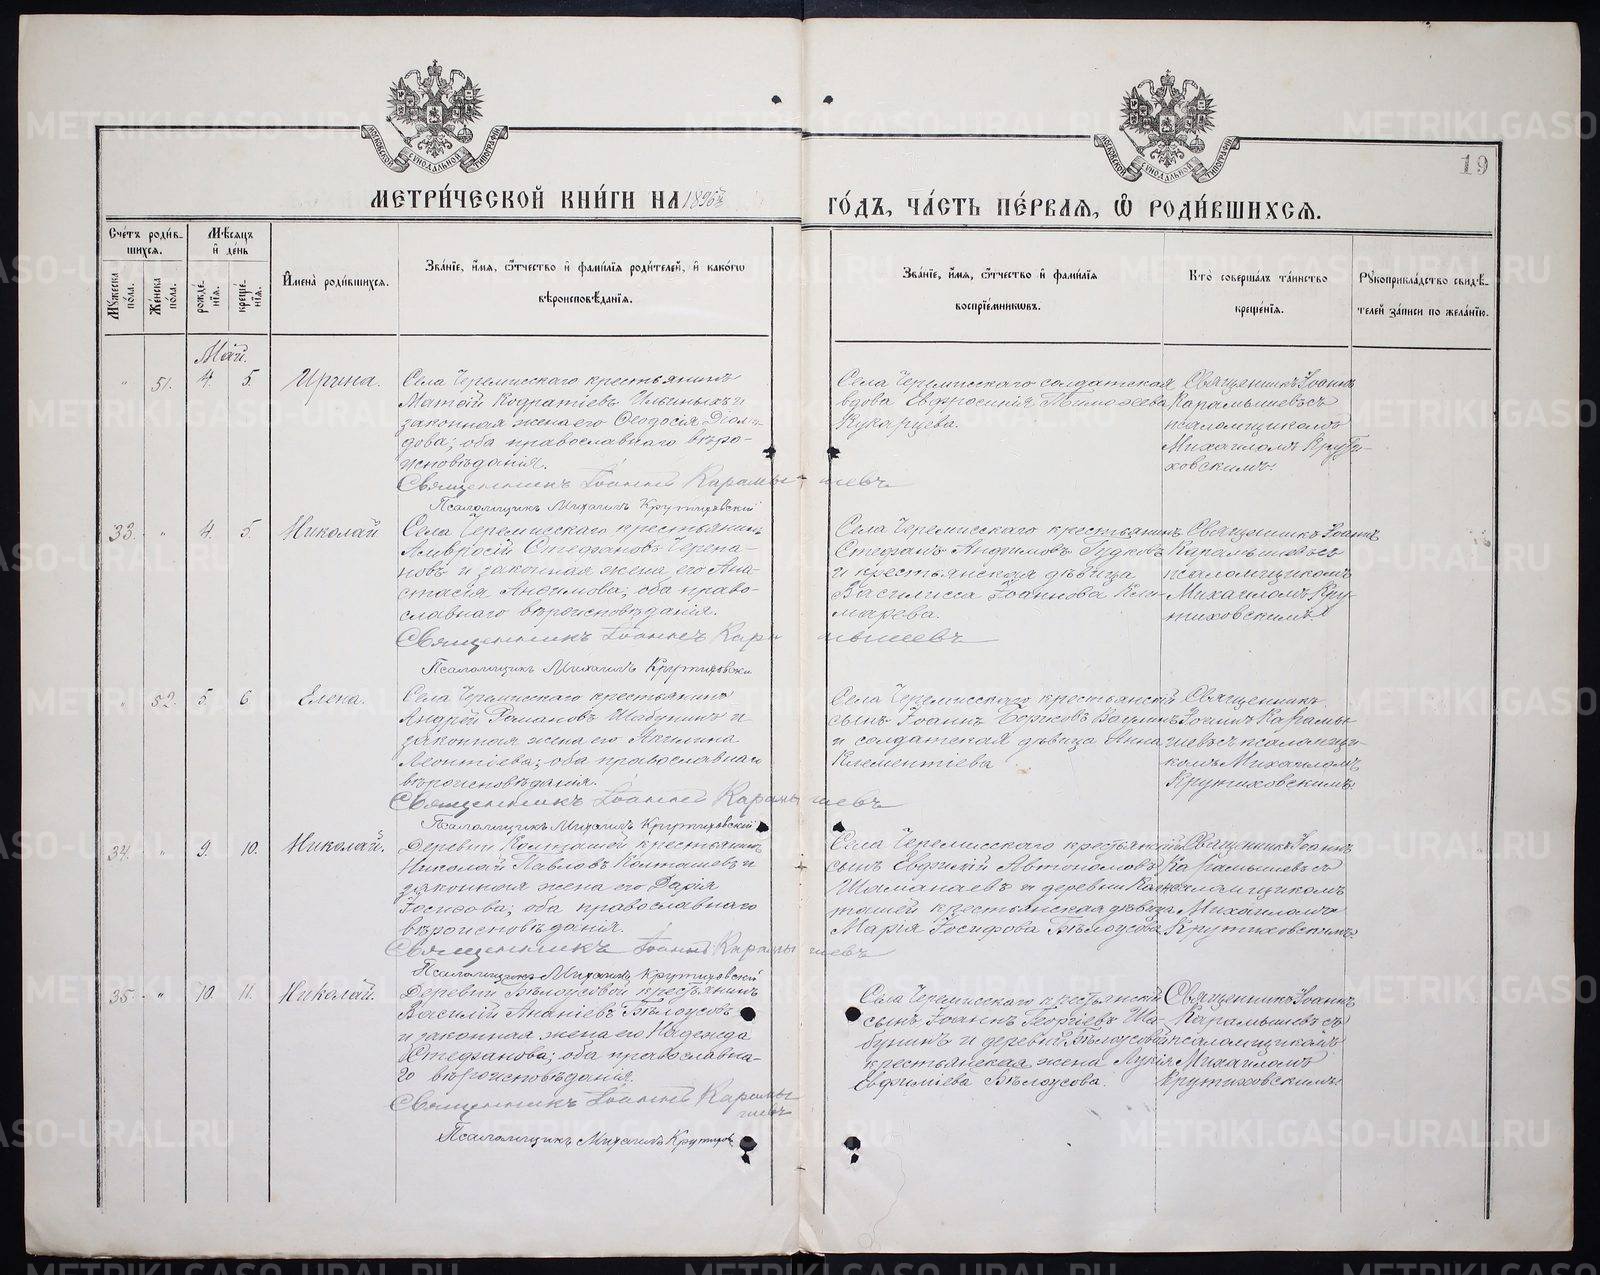 МОСКОВСКОЙ СѴНОДАЛЬНОЙ ТИПОГРАФІИ
МОСКОВСКОЙ СѴНОДАЛЬНОЙ ТИПОГРАФІИ
19
МЕТРИ́ЧЕСКОЙ КНИ́ГИ НА 1896й
ГО́ДЪ, ЧА́СТЬ ПЕ́РВАЯ, Ѡ҆ РОДИ́ВШИХСЯ.
Сче́тъ роди́в-
шихся.
Мѣсяцъ
и҆ де́нь
Мꙋжеска по́ла.
Же́нска по́ла.
рожде́-нїѧ.
креще́-нїѧ.
И҆мена̀ роди́вшихся.
Зва́нїе, и҆́мѧ, ѻ҆́тчество и҆ фами́лїѧ роди́телей, и҆ како́гѡ
вѣроисповѣ́данїѧ.
Зва́нїе, и҆́мѧ, ѻ҆́тчество и҆ фами́лїѧ
воспрїе́мникѡвъ.
Кто̀ соверша́лъ та́инство
креще́нїѧ.
Рꙋкоприкла́дство свидѣ́-
телей за́писи по жела́нїю.
Май.
" 51. 4. 5. Ирина.
Села Черемисскаго крестьянинъ
Матѳій Кодратіевъ Ильиныхъ и
законная жена его Ѳеодосія Діоми-
дова; оба православнаго вѣро-
исповѣданія.
Священникъ Іоаннъ Карамышевъ
Псаломщикъ Михаилъ Крутиховскій
Села Черемисскаго солдатская
вдова Евфросинія Тимоѳеева
Кукарцева.
Священникъ Іоаннъ
Карамышевъ съ
псаломщикомъ
Михаиломъ Крути-
ховскимъ.
33. " 4. 5. Николай
Села Черемисскаго крестьянинъ
Амвросій Стефановъ Черепа-
новъ и законная жена его Ана-
стасія Анѳимова; оба право-
славнаго вѣроисповѣданія.
Священникъ Іоаннъ Карамышевъ
Псаломщикъ Михаилъ Крутиховскій
Села Черемисскаго крестьянинъ
Стефанъ Анфимовъ Гудковъ
и крестьянская дѣвица
Василисса Іоаннова Ки-
марева.
Священникъ Іоаннъ
Карамышевъ съ
псаломщикомъ
Михаиломъ Кру-
тиховскимъ
" 52. 5. 6 Елена.
Села Черемисскаго крестьянинъ
Андрей Романовъ Шабунинъ и
законная жена его Акилина
Леонтіева; оба православнаго
вѣроисповѣданія.
Священникъ Іоаннъ Карамышевъ
Псаломщикъ Михаилъ Крутиховскій
Села Черемисскаго крестьянскій
сынъ Іоаннъ Борисовъ
и солдатская дѣвица Анна
Клементіева
Священникъ
Іоаннъ Карамы-
шевъ съ псаломщи-
комъ Михаиломъ
Крутиховскимъ
34. " 9. 10. Николай.
Деревни Колташей крестьянинъ
Николай Павловъ Колташевъ и
законная жена его Дарія
Іосифова; оба православнаго
вѣроисповѣданія.
Священникъ Іоаннъ Карамышевъ
Псаломщикъ Михаилъ Крутиховскій
Села Черемисскаго крестьянскій
сынъ Евфимій Автономовъ
Шаманаевъ и деревни Кол-
ташей крестьянская дѣвица
Марія Іосифова Бѣлоусова
Священникъ Іоаннъ
Карамышевъ съ
псаломщикомъ
Михаиломъ
Крутиховскимъ.
35. " 10. 11. Николай.
Деревни Бѣлоусовой крестьянинъ
Василій Ананіевъ Бѣлоусовъ
и законная жена его Надежда
Стефанова; оба православна-
го вѣроисповѣданія.
Священникъ Іоаннъ Карамы
шевъ
Псаломщикъ Михаилъ Крутихов
Села Черемисскаго крестьянскій
сынъ Іоаннъ Георгіевъ Ша-
бунинъ и деревни Бѣлоусовой
крестьянская жена Лукія
Евфиміева Бѣлоусова.
Священникъ Іоаннъ
Карамышевъ съ
псаломщикомъ
Михаиломъ
Крутиховскимъ
METRIKI.GASO-URAL.RU